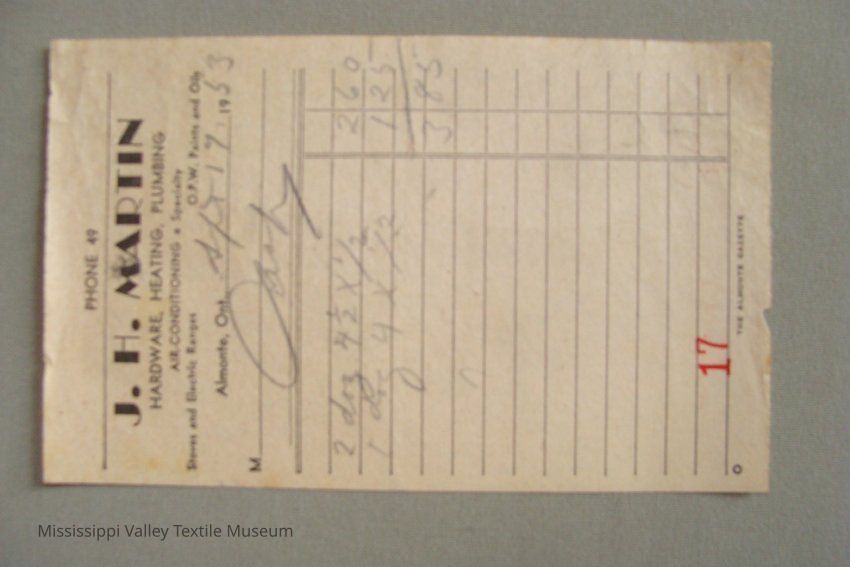 PHONE 49
J. H. MARTIN
HARDWARE, HEATING, PLUMBING
AIR-CONDITIONING a Specialty
Stoves and Electric Ranges O.P.W. Paints and Oils
Almonte, Ont. 17 1953
M Cash
2 doz 4 1/2 x 1/2 2 60
1 doz 4 x 1/2 1 25
3 85
17
THE ALMONTE GAZETTE
Mississippi Valley Textile Museum